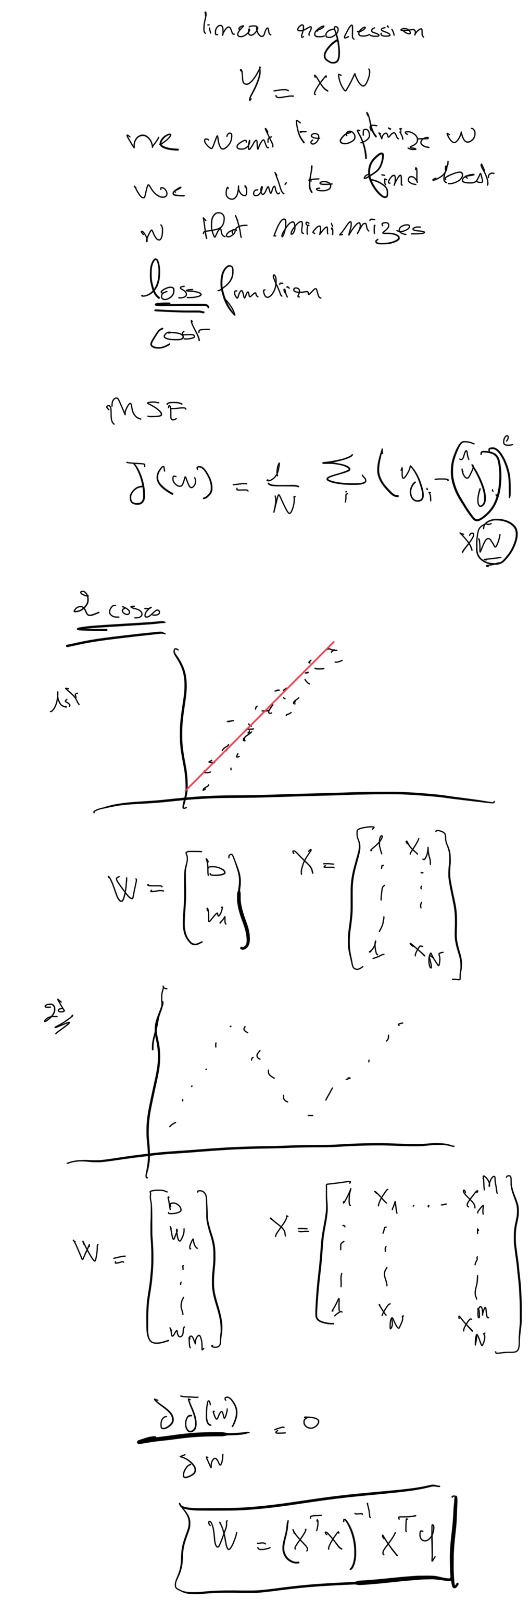 linear regression
Y = XW
we want to optmize w
we want to find best
w that minimizes
loss function
cost
MSE
J(w) = 1/N Σ_i (y_i - ŷ_i)²
XW
2 cases
1st
W = [b w_1] X = [1 x_1 ⋮ ⋮ 1 x_N]
2d
W = [b w_1 ⋮ w_M] X = [1 x_1 ... x_1^M ⋮ ⋮ ⋮ 1 x_N x_N^M]
∂J(w)/∂w = 0
W = (X^T X)^-1 X^T y